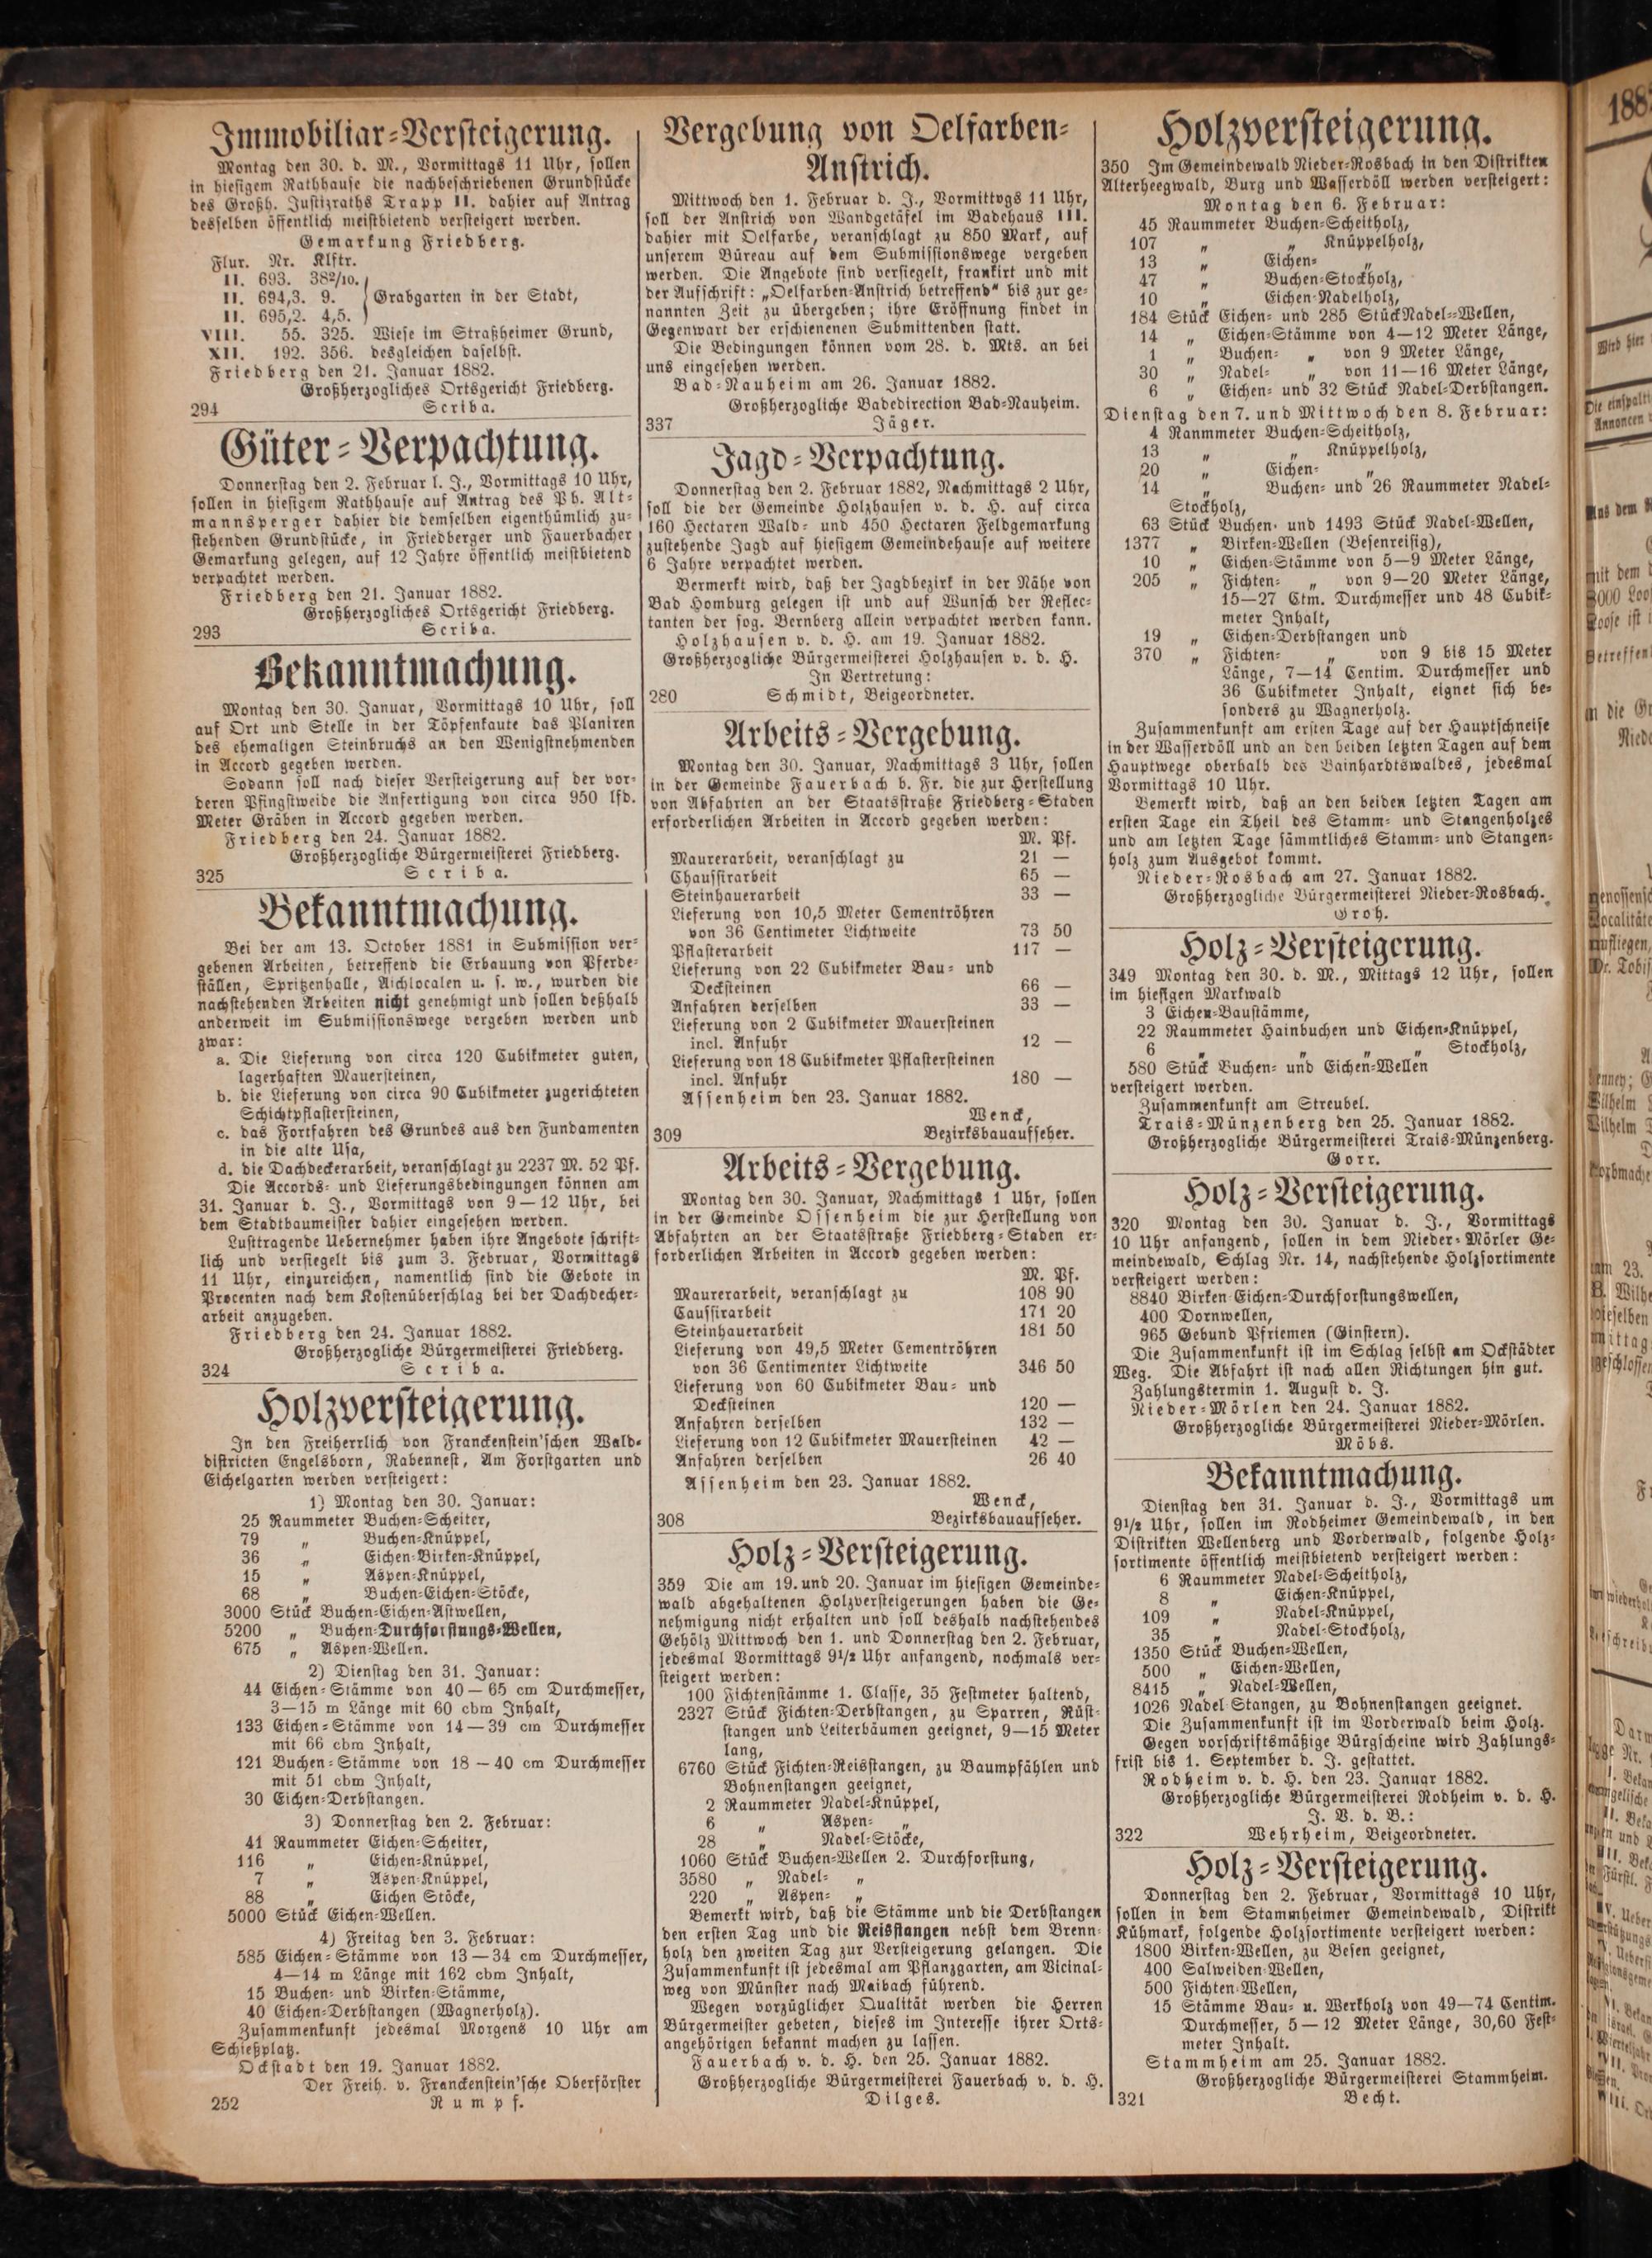 Immobiliar-Versteigerung.
Montag den 30. d. M., Vormittags 11 Uhr, sollen
in hiesigem Rathhause die nachbeschriebenen Grundstücke
des Großh. Justizraths Trapp II. dahier auf Antrag
desselben öffentlich meistbietend versteigert werden.
Gemarkung Friedberg.
Flur. Nr. Klftr.
II. 693. 38²/₁₀.
II. 694,3. 9. Grabgarten in der Stadt,
II. 695,2. 4,5.
VIII. 55. 325. Wiese im Straßheimer Grund,
XII. 192. 356. desgleichen daselbst.
Friedberg den 21. Januar 1882.
Großherzogliches Ortsgericht Friedberg.
294 Scriba.
Güter-Verpachtung.
Donnerstag den 2. Februar l. J., Vormittags 10 Uhr,
sollen in hiesigem Rathhause auf Antrag des Ph. Alt-
mannsperger dahier die demselben eigenthümlich zu-
stehenden Grundstücke, in Friedberger und Fauerbacher
Gemarkung gelegen, auf 12 Jahre öffentlich meistbietend
verpachtet werden.
Friedberg den 21. Januar 1882.
Großherzogliches Ortsgericht Friedberg.
293 Scriba.
Bekanntmachung.
Montag den 30. Januar, Vormittags 10 Uhr, soll
auf Ort und Stelle in der Töpfenkaute das Planiren
des ehemaligen Steinbruchs an den Wenigstnehmenden
in Accord gegeben werden.
Sodann soll nach dieser Versteigerung auf der vor-
deren Pfingstweide die Anfertigung von circa 950 lfd.
Meter Gräben in Accord gegeben werden.
Friedberg den 24. Januar 1882.
Großherzogliche Bürgermeisterei Friedberg.
325 Scriba.
Bekanntmachung.
Bei der am 13. October 1881 in Submission ver-
gebenen Arbeiten, betreffend die Erbauung von Pferde-
ställen, Spritzenhalle, Aichlocalen u. s. w., wurden die
nachstehenden Arbeiten nicht genehmigt und sollen deßhalb
anderweit im Submissionswege vergeben werden und
zwar:
a. Die Lieferung von circa 120 Cubikmeter guten,
lagerhaften Mauersteinen,
b. die Lieferung von circa 90 Cubikmeter zugerichteten
Schichtpflastersteinen,
c. das Fortfahren des Grundes aus den Fundamenten
in die alte Usa,
d. die Dachdeckerarbeit, veranschlagt zu 2237 M. 52 Pf.
Die Accords- und Lieferungsbedingungen können am
31. Januar d. J., Vormittags von 9—12 Uhr, bei
dem Stadtbaumeister dahier eingesehen werden.
Lusttragende Uebernehmer haben ihre Angebote schrift-
lich und versiegelt bis zum 3. Februar, Vormittags
11 Uhr, einzureichen, namentlich sind die Gebote in
Procenten nach dem Kostenüberschlag bei der Dachdecher-
arbeit anzugeben.
Friedberg den 24. Januar 1882.
Großherzogliche Bürgermeisterei Friedberg.
324 Scriba.
Holzversteigerung.
In den Freiherrlich von Franckenstein'schen Wald-
districten Engelsborn, Rabennest, Am Forstgarten und
Eichelgarten werden versteigert:
1) Montag den 30. Januar:
25 Raummeter Buchen-Scheiter,
79 „ Buchen-Knüppel,
36 „ Eichen-Birken-Knüppel,
15 „ Aspen-Knüppel,
68 „ Buchen-Eichen-Stöcke,
3000 Stück Buchen-Eichen-Astwellen,
5200 „ Buchen-Durchforstungs-Wellen,
675 „ Aspen-Wellen.
2) Dienstag den 31. Januar:
44 Eichen-Stämme von 40—65 cm Durchmesser,
3—15 m Länge mit 60 cbm Inhalt,
133 Eichen-Stämme von 14—39 cm Durchmesser
mit 66 cbm Inhalt,
121 Buchen-Stämme von 18—40 cm Durchmesser
mit 51 cbm Inhalt,
30 Eichen-Derbstangen.
3) Donnerstag den 2. Februar:
41 Raummeter Eichen-Scheiter,
116 „ Eichen-Knüppel,
7 „ Aspen-Knüppel,
88 „ Eichen Stöcke,
5000 Stück Eichen-Wellen.
4) Freitag den 3. Februar:
585 Eichen-Stämme von 13—34 cm Durchmesser,
4—14 m Länge mit 162 cbm Inhalt,
15 Buchen- und Birken-Stämme,
40 Eichen-Derbstangen (Wagnerholz).
Zusammenkunft jedesmal Morgens 10 Uhr am
Schießplatz.
Ockstadt den 19. Januar 1882.
Der Freih. v. Franckenstein'sche Oberförster
252 Rumpf.
Vergebung von Oelfarben-
Anstrich.
Mittwoch den 1. Februar d. J., Vormittvgs 11 Uhr,
soll der Anstrich von Wandgetäfel im Badehaus III.
dahier mit Oelfarbe, veranschlagt zu 850 Mark, auf
unserem Büreau auf dem Submissionswege vergeben
werden. Die Angebote sind versiegelt, frankirt und mit
der Aufschrift: „Oelfarben-Anstrich betreffend" bis zur ge-
nannten Zeit zu übergeben; ihre Eröffnung findet in
Gegenwart der erschienenen Submittenden statt.
Die Bedingungen können vom 28. d. Mts. an bei
uns eingesehen werden.
Bad-Nauheim am 26. Januar 1882.
Großherzogliche Badedirection Bad-Nauheim.
337 Jäger.
Jagd-Verpachtung.
Donnerstag den 2. Februar 1882, Nachmittags 2 Uhr,
soll die der Gemeinde Holzhausen v. d. H. auf circa
160 Hectaren Wald- und 450 Hectaren Feldgemarkung
zustehende Jagd auf hiesigem Gemeindehause auf weitere
6 Jahre verpachtet werden.
Vermerkt wird, daß der Jagdbezirk in der Nähe von
Bad Homburg gelegen ist und auf Wunsch der Reflec-
tanten der sog. Bernberg allein verpachtet werden kann.
Holzhausen v. d. H. am 19. Januar 1882.
Großherzogliche Bürgermeisterei Holzhausen v. d. H.
In Vertretung:
280 Schmidt, Beigeordneter.
Arbeits-Vergebung.
Montag den 30. Januar, Nachmittags 3 Uhr, sollen
in der Gemeinde Fauerbach b. Fr. die zur Herstellung
von Abfahrten an der Staatsstraße Friedberg-Staden
erforderlichen Arbeiten in Accord gegeben werden:
M. Pf.
Maurerarbeit, veranschlagt zu 21 —
Chaussirarbeit 65 —
Steinhauerarbeit 33 —
Lieferung von 10,5 Meter Cementröhren
von 36 Centimeter Lichtweite 73 50
Pflasterarbeit 117 —
Lieferung von 22 Cubikmeter Bau- und
Decksteinen 66 —
Anfahren derselben 33 —
Lieferung von 2 Cubikmeter Mauersteinen
incl. Anfuhr 12 —
Lieferung von 18 Cubikmeter Pflastersteinen
incl. Anfuhr 180 —
Assenheim den 23. Januar 1882.
Wenck,
309 Bezirksbauaufseher.
Arbeits-Vergebung.
Montag den 30. Januar, Nachmittags 1 Uhr, sollen
in der Gemeinde Ossenheim die zur Herstellung von
Abfahrten an der Staatsstraße Friedberg-Staden er-
forderlichen Arbeiten in Accord gegeben werden:
M. Pf.
Maurerarbeit, veranschlagt zu 108 90
Caussirarbeit 171 20
Steinhauerarbeit 181 50
Lieferung von 49,5 Meter Cementröhren
von 36 Centimenter Lichtweite 346 50
Lieferung von 60 Cubikmeter Bau- und
Decksteinen 120 —
Anfahren derselben 132 —
Lieferung von 12 Cubikmeter Mauersteinen 42 —
Anfahren derselben 26 40
Assenheim den 23. Januar 1882.
Wenck,
308 Bezirksbauaufseher.
Holz-Versteigerung.
359 Die am 19. und 20. Januar im hiesigen Gemeinde-
wald abgehaltenen Holzversteigerungen haben die Ge-
nehmigung nicht erhalten und soll deshalb nachstehendes
Gehölz Mittwoch den 1. und Donnerstag den 2. Februar,
jedesmal Vormittags 9½ Uhr anfangend, nochmals ver-
steigert werden:
100 Fichtenstämme 1. Classe, 35 Festmeter haltend,
2327 Stück Fichten-Derbstangen, zu Sparren, Rüst-
stangen und Leiterbäumen geeignet, 9—15 Meter
lang,
6760 Stück Fichten-Reisstangen, zu Baumpfählen und
Bohnenstangen geeignet,
2 Raummeter Nadel-Knüppel,
6 „ Aspen- „
28 „ Nadel-Stöcke,
1060 Stück Buchen-Wellen 2. Durchforstung,
3580 „ Nadel- „
220 „ Aspen- „
Bemerkt wird, daß die Stämme und die Derbstangen
den ersten Tag und die Reisstangen nebst dem Brenn-
holz den zweiten Tag zur Versteigerung gelangen. Die
Zusammenkunft ist jedesmal am Pflanzgarten, am Vicinal-
weg von Münster nach Maibach führend.
Wegen vorzüglicher Qualität werden die Herren
Bürgermeister gebeten, dieses im Interesse ihrer Orts-
angehörigen bekannt machen zu lassen.
Fauerbach v. d. H. den 25. Januar 1882.
Großherzogliche Bürgermeisterei Fauerbach v. d. H.
Dilges.
Holzversteigerung.
350 Im Gemeindewald Nieder-Rosbach in den Distrikten
Alterheegwald, Burg und Wasserdöll werden versteigert:
Montag den 6. Februar:
45 Raummeter Buchen-Scheitholz,
107 „ „ Knüppelholz,
13 „ Eichen- „
47 „ Buchen-Stockholz,
10 „ Eichen-Nadelholz,
184 Stück Eichen- und 285 StückNadel--Wellen,
14 „ Eichen-Stämme von 4—12 Meter Länge,
1 „ Buchen- „ von 9 Meter Länge,
30 „ Nadel- „ von 11—16 Meter Länge,
6 „ Eichen- und 32 Stück Nadel-Derbstangen.
Dienstag den 7. und Mittwoch den 8. Februar:
4 Ranmmeter Buchen-Scheitholz,
13 „ „ Knüppelholz,
20 „ Eichen- „
14 „ Buchen- und 26 Raummeter Nadel-
Stockholz,
63 Stück Buchen- und 1493 Stück Nadel-Wellen,
1377 „ Birken-Wellen (Besenreisig),
10 „ Eichen-Stämme von 5—9 Meter Länge,
205 „ Fichten- „ von 9—20 Meter Länge,
15—27 Ctm. Durchmesser und 48 Cubik-
meter Inhalt,
19 „ Eichen-Derbstangen und
370 „ Fichten- „ von 9 bis 15 Meter
Länge, 7—14 Centim. Durchmesser und
36 Cubikmeter Inhalt, eignet sich be-
sonders zu Wagnerholz.
Zusammenkunft am ersten Tage auf der Hauptschneise
in der Wasserdöll und an den beiden letzten Tagen auf dem
Hauptwege oberhalb des Bainhardtswaldes, jedesmal
Vormittags 10 Uhr.
Bemerkt wird, daß an den beiden letzten Tagen am
ersten Tage ein Theil des Stamm- und Stangenholzes
und am letzten Tage sämmtliches Stamm- und Stangen-
holz zum Ausgebot kommt.
Nieder-Rosbach am 27. Januar 1882.
Großherzogliche Bürgermeisterei Nieder-Rosbach.
Groh.
Holz-Versteigerung.
349 Montag den 30. d. M., Mittags 12 Uhr, sollen
im hiesigen Markwald
3 Eichen-Baustämme,
22 Raummeter Hainbuchen und Eichen-Knüppel,
6 „ „ „ „ Stockholz,
580 Stück Buchen- und Eichen-Wellen
versteigert werden.
Zusammenkunft am Streubel.
Trais-Münzenberg den 25. Januar 1882.
Großherzogliche Bürgermeisterei Trais-Münzenberg.
Gorr.
Holz-Versteigerung.
320 Montag den 30. Januar d. J., Vormittags
10 Uhr anfangend, sollen in dem Nieder-Mörler Ge-
meindewald, Schlag Nr. 14, nachstehende Holzsortimente
versteigert werden:
8840 Birken-Eichen-Durchforstungswellen,
400 Dornwellen,
965 Gebund Pfriemen (Ginstern).
Die Zusammenkunft ist im Schlag selbst am Ockstädter
Weg. Die Abfahrt ist nach allen Richtungen hin gut.
Zahlungstermin 1. August d. J.
Nieder-Mörlen den 24. Januar 1882.
Großherzogliche Bürgermeisterei Nieder-Mörlen.
Möbs.
Bekanntmachung.
Dienstag den 31. Januar d. J., Vormittags um
9½ Uhr, sollen im Rodheimer Gemeindewald, in den
Distrikten Wellenberg und Vorderwald, folgende Holz-
sortimente öffentlich meistbietend versteigert werden:
6 Raummeter Nadel-Scheitholz,
8 „ Eichen-Knüppel,
109 „ Nadel-Knüppel,
35 „ Nadel-Stockholz,
1350 Stück Buchen-Wellen,
500 „ Eichen-Wellen,
8415 „ Nadel-Wellen,
1026 Nadel Stangen, zu Bohnenstangen geeignet.
Die Zusammenkunft ist im Vorderwald beim Holz.
Gegen vorschriftsmäßige Bürgscheine wird Zahlungs-
frist bis 1. September d. J. gestattet.
Rodheim v. d. H. den 23. Januar 1882.
Großherzogliche Bürgermeisterei Rodheim v. d. H.
J. V. d. B.:
322 Wehrheim, Beigeordneter.
Holz-Versteigerung.
Donnerstag den 2. Februar, Vormittags 10 Uhr,
sollen in dem Stammheimer Gemeindewald, Distrikt
Kühmark, folgende Holzsortimente versteigert werden:
1800 Birken-Wellen, zu Besen geeignet,
400 Salweiden-Wellen,
500 Fichten-Wellen,
15 Stämme Bau- u. Werkholz von 49—74 Centim.
Durchmesser, 5—12 Meter Länge, 30,60 Fest-
meter Inhalt.
Stammheim am 25. Januar 1882.
Großherzogliche Bürgermeisterei Stammheim.
321 Becht.